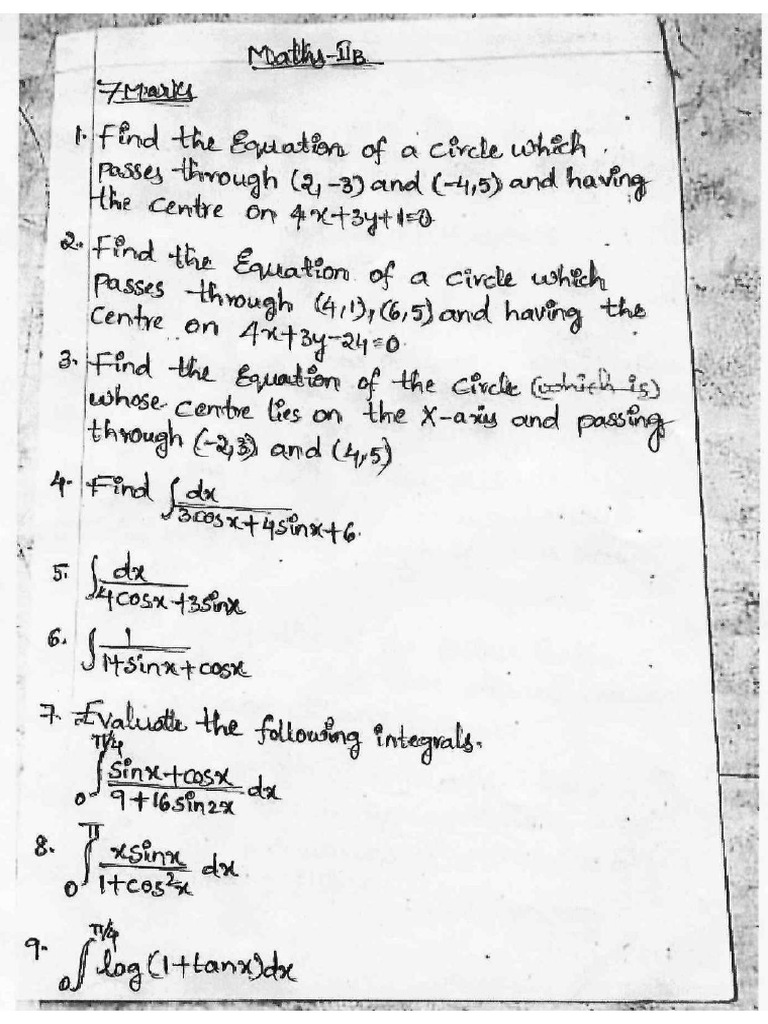 Maths-IIB
7 Marks
1. Find the Equation of a circle which
passes through (2, -3) and (-4,5) and having
the centre on 4x+3y+1=0
2. Find the Equation of a circle which
passes through (4,1), (6,5) and having the
centre on 4x+3y-24=0
3. Find the Equation of the circle (which is)
whose centre lies on the X-axis and passing
through (-2,3) and (4,5)
4. Find ∫ dx / 3cosx+4sinx+6.
5. ∫ dx / 4cosx+3sinx
6. ∫ 1 / 1+sinx+cosx
7. Evaluate the following integrals.
∫₀^π/4 sinx+cosx / 9+16sin2x dx
8. ∫₀^π xsinx / 1+cos²x dx
9. ∫₀^π/4 log(1+tanx)dx